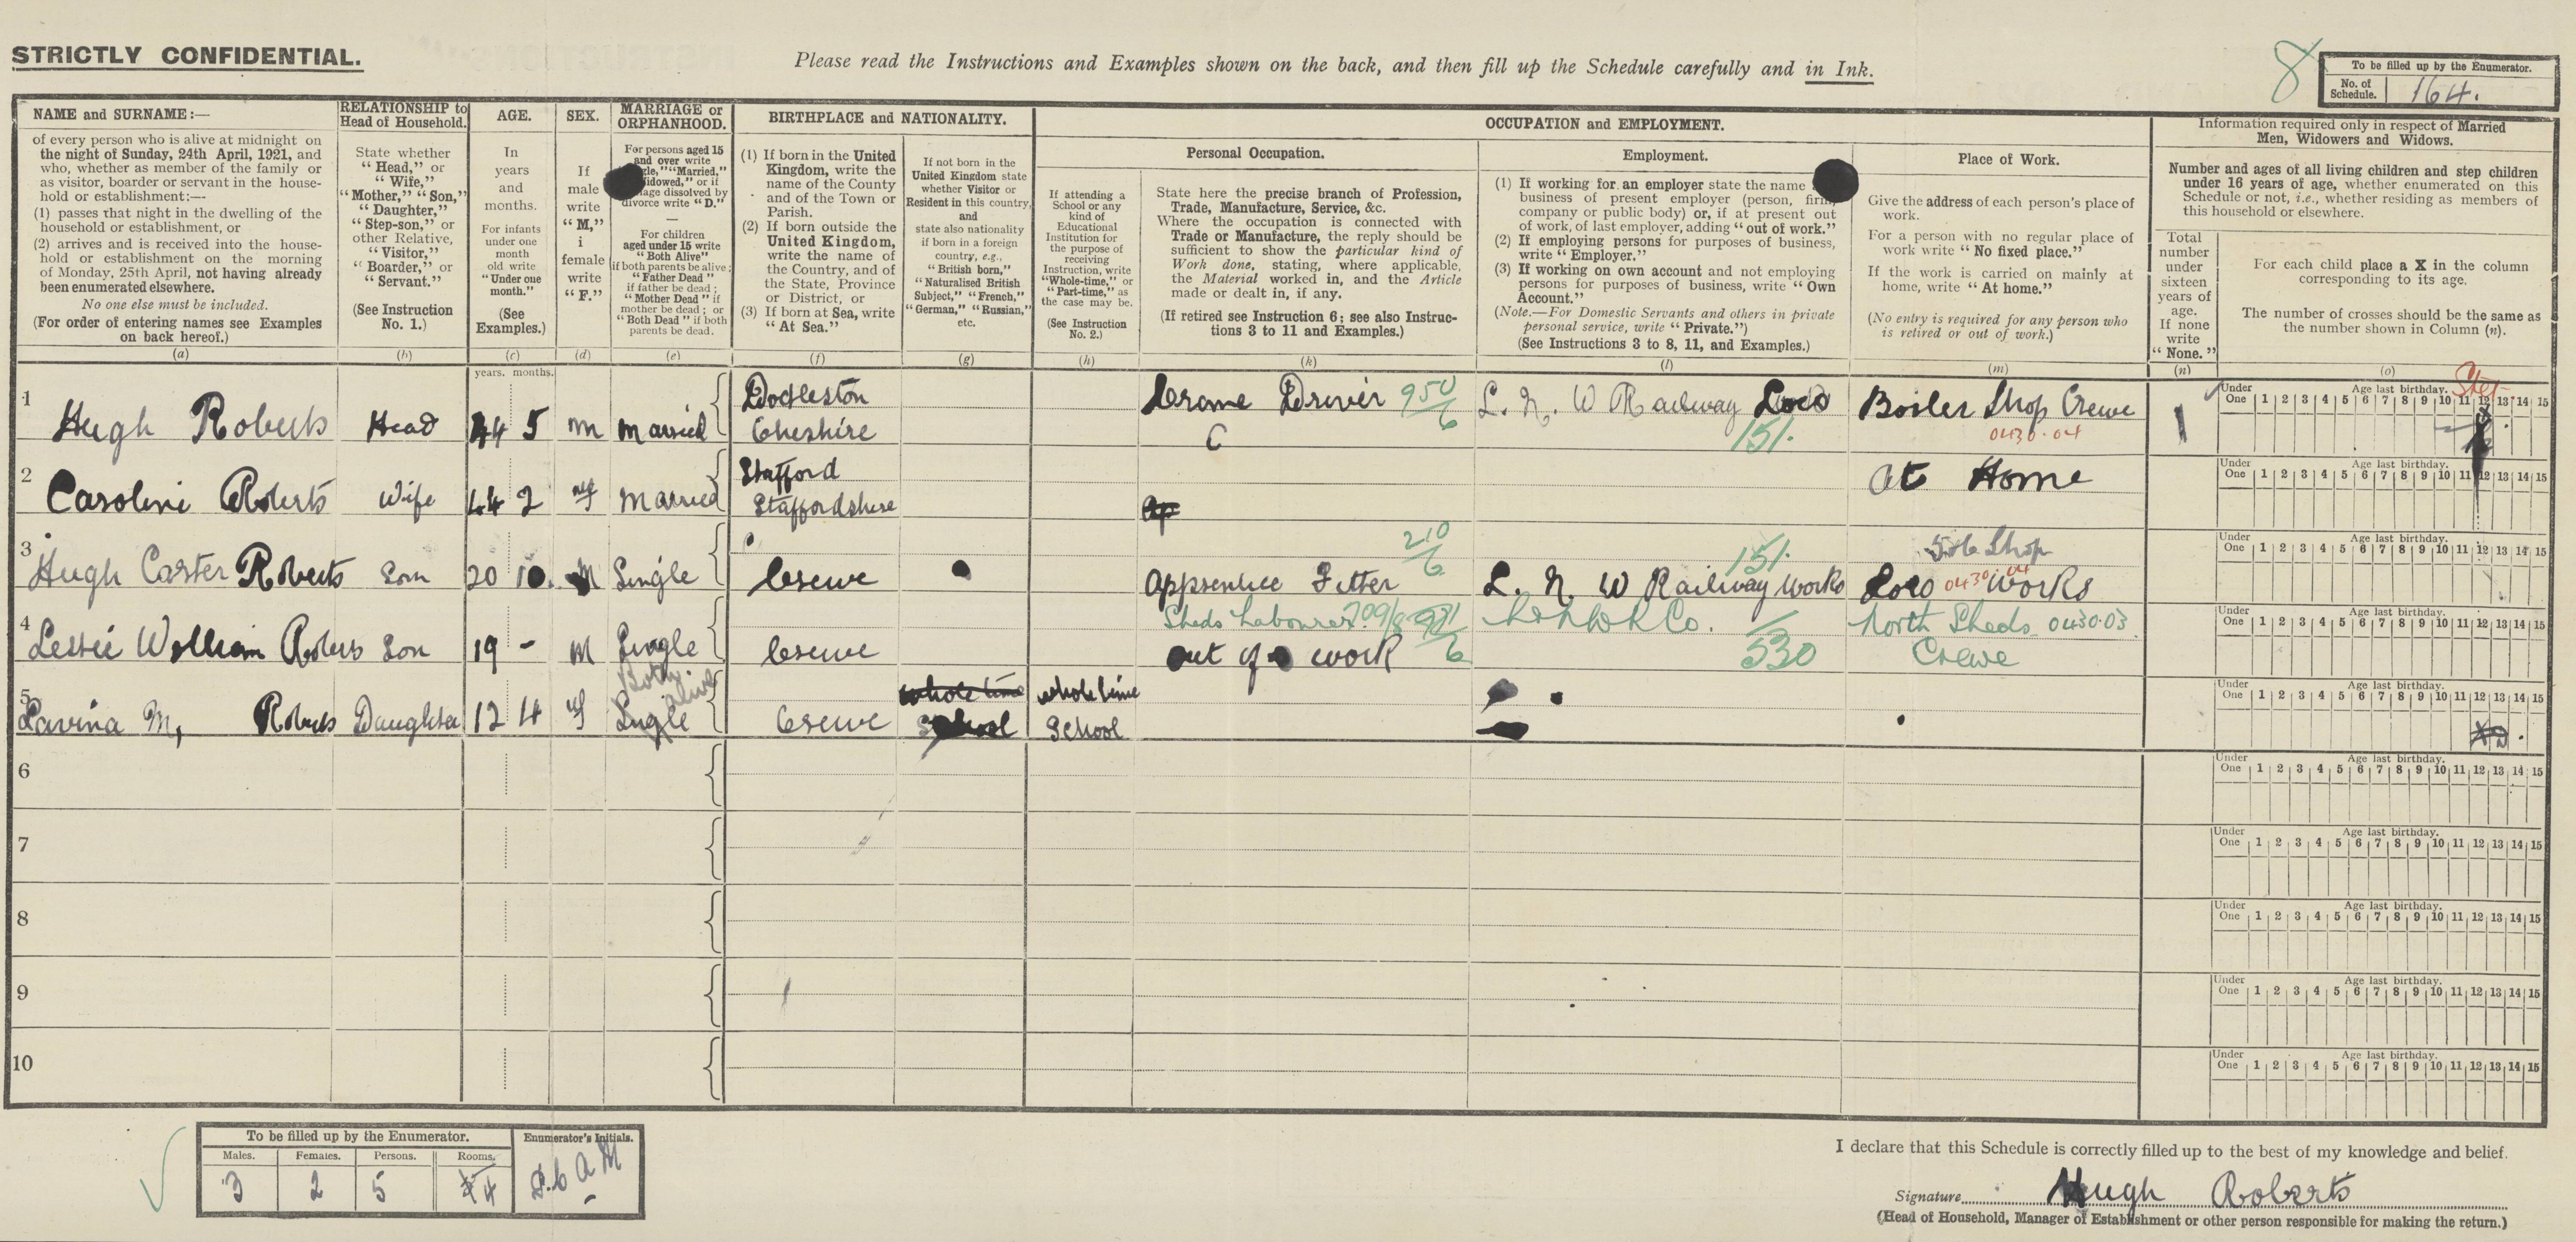 STRICTLY CONFIDENTIAL.
Please read the Instructions and Examples shown on the back, and then fill up the Schedule carefully and in Ink.
8
To be filled up by the Enumerator.
No. of Schedule. 164.
NAME and SURNAME:—
of every person who is alive at midnight on
the night of Sunday, 24th April, 1921, and
who, whether as member of the family or
as visitor, boarder or servant in the house-
hold or establishment:—
(1) passes that night in the dwelling of the
household or establishment, or
(2) arrives and is received into the house-
hold or establishment on the morning
of Monday, 25th April, not having already
been enumerated elsewhere.
No one else must be included.
(For order of entering names see Examples
on back hereof.)
(a)
RELATIONSHIP to
Head of Household.
State whether
"Head," or
"Wife,"
"Mother," "Son,"
"Daughter,"
"Step-son," or
other Relative,
"Visitor,"
"Boarder," or
"Servant."
(See Instruction
No. 1.)
(b)
AGE.
In
years
and
months.
For infants
under one
month
old write
"Under one
month."
(See
Examples.)
(c)
SEX.
If
male
write
"M,"
i
female
write
"F."
(d)
MARRIAGE or
ORPHANHOOD.
For persons aged 15
and over write
gle," "Married,"
idowed," or if
iage dissolved by
divorce write "D."
—
For children
aged under 15 write
"Both Alive"
if both parents be alive;
"Father Dead"
if father be dead;
"Mother Dead" if
mother be dead; or
"Both Dead" if both
parents be dead.
(e)
BIRTHPLACE and NATIONALITY.
(1) If born in the United
Kingdom, write the
name of the County
and of the Town or
Parish.
(2) If born outside the
United Kingdom,
write the name of
the Country, and of
the State, Province
or District, or
(3) If born at Sea, write
"At Sea."
(f)
If not born in the
United Kingdom state
whether Visitor or
Resident in this country,
and
state also nationality
if born in a foreign
country, e.g.,
"British born,"
"Naturalised British
Subject," "French,"
"German," "Russian,"
etc.
(g)
OCCUPATION and EMPLOYMENT.
If attending a
School or any
kind of
Educational
Institution for the
purpose of
receiving
Instruction, write
"Whole-time," or
"Part-time," as
the case may be.
(See Instruction
No. 2.)
(h)
Personal Occupation.
State here the precise branch of Profession,
Trade, Manufacture, Service, &c.
Where the occupation is connected with
Trade or Manufacture, the reply should be
sufficient to show the particular kind of
Work done, stating, where applicable,
the Material worked in, and the Article
made or dealt in, if any.
(If retired see Instruction 6; see also Instruc-
tions 3 to 11 and Examples.)
(k)
Employment.
(1) If working for an employer state the name
business of present employer (person, firm,
company or public body) or, if at present out
of work, of last employer, adding "out of work."
(2) If employing persons for purposes of business,
write "Employer."
(3) If working on own account and not employing
persons for purposes of business, write "Own
Account."
(Note.—For Domestic Servants and others in private
personal service, write "Private.")
(See Instructions 3 to 8, 11, and Examples.)
(l)
Place of Work.
Give the address of each person's place of
work.
For a person with no regular place of
work write "No fixed place."
If the work is carried on mainly at
home, write "At home."
(No entry is required for any person who
is retired or out of work.)
(m)
Information required only in respect of Married
Men, Widowers and Widows.
Number and ages of all living children and step children
under 16 years of age, whether enumerated on this
Schedule or not, i.e., whether residing as members of
this household or elsewhere.
Total
number
under
sixteen
years of
age.
If none
write
"None."
(n)
For each child place a X in the column
corresponding to its age.
The number of crosses should be the same as
the number shown in Column (n).
(o)
years. months.
1 Hugh Roberts Head 44 5 M Married Dodleston Cheshire Crane Driver 950/6 C L. N. W Railway Loco 151. Boiler Shop Crewe 0430.04 1
Under One Age last birthday. 1 2 3 4 5 6 7 8 9 10 11 12 13 14 15
2 Caroline Roberts Wife 44 2 F Married Stafford Staffordshire At Home
Under One Age last birthday. 1 2 3 4 5 6 7 8 9 10 11 12 13 14 15
3 Hugh Carter Roberts Son 20 10. M Single Crewe Apprentice Fitter 210/6 L. N. W Railway Works 151. 5 Shop Loco Works 0430.04
Under One Age last birthday. 1 2 3 4 5 6 7 8 9 10 11 12 13 14 15
4 Leslie William Roberts Son 19 - M Single Crewe Sheds Labourer out of work L N W R Co. 530 North Sheds 0430.03 Crewe
Under One Age last birthday. 1 2 3 4 5 6 7 8 9 10 11 12 13 14 15
5 Lavina M, Roberts Daughter 12 4 F Single Both alive Crewe whole time School whole time School
Under One Age last birthday. 1 2 3 4 5 6 7 8 9 10 11 12 13 14 15
6
Under One Age last birthday. 1 2 3 4 5 6 7 8 9 10 11 12 13 14 15
7
Under One Age last birthday. 1 2 3 4 5 6 7 8 9 10 11 12 13 14 15
8
Under One Age last birthday. 1 2 3 4 5 6 7 8 9 10 11 12 13 14 15
9
Under One Age last birthday. 1 2 3 4 5 6 7 8 9 10 11 12 13 14 15
10
Under One Age last birthday. 1 2 3 4 5 6 7 8 9 10 11 12 13 14 15
To be filled up by the Enumerator.
Males. Females. Persons. Rooms.
3 2 5 4
Enumerator's Initials.
I declare that this Schedule is correctly filled up to the best of my knowledge and belief.
Signature Hugh Roberts
(Head of Household, Manager of Establishment or other person responsible for making the return.)